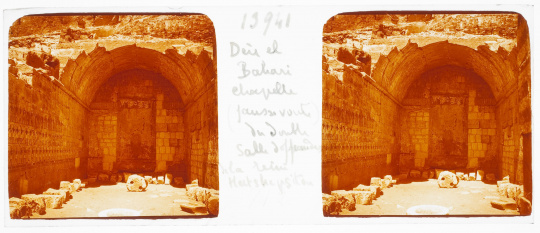 13941
Deir el
Bahari
chapelle
(fausse voute)
du culte
Salle d'offrandes
de la reine
Hatshepsitou